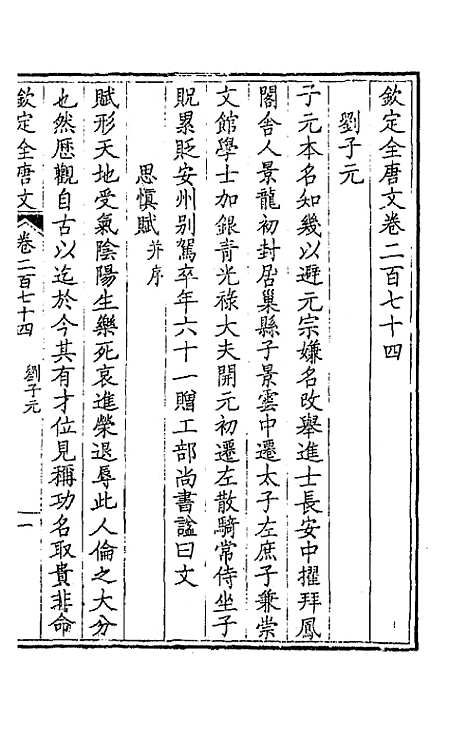 欽定全唐文卷二百七十四
劉子元
子元本名知幾以避元宗嫌名改舉進士長安中擢拜鳳
閣舍人景龍初封居巢縣子景雲中遷太子左庶子兼崇
文館學士加銀青光祿大夫開元初遷左散騎常侍坐子
貺累貶安州别駕卒年六十一贈工部尚書諡曰文
思愼賦并序
賦形天地受氣陰陽生樂死哀進榮退辱此人倫之大分
也然歷觀自古以迄於今其有才位見稱功名取貴非命
欽定全唐文
卷二百七十四
劉子元
一